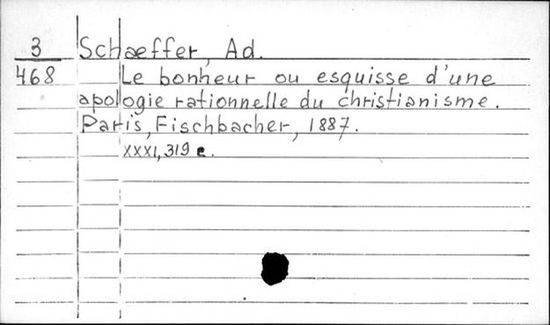 3 Schaeffer, Ad.
468 Le bonheur ou esquisse d'une
apologie rationnelle du christianisme.
Paris, Fischbacher, 1887.
XXXI, 319 c.